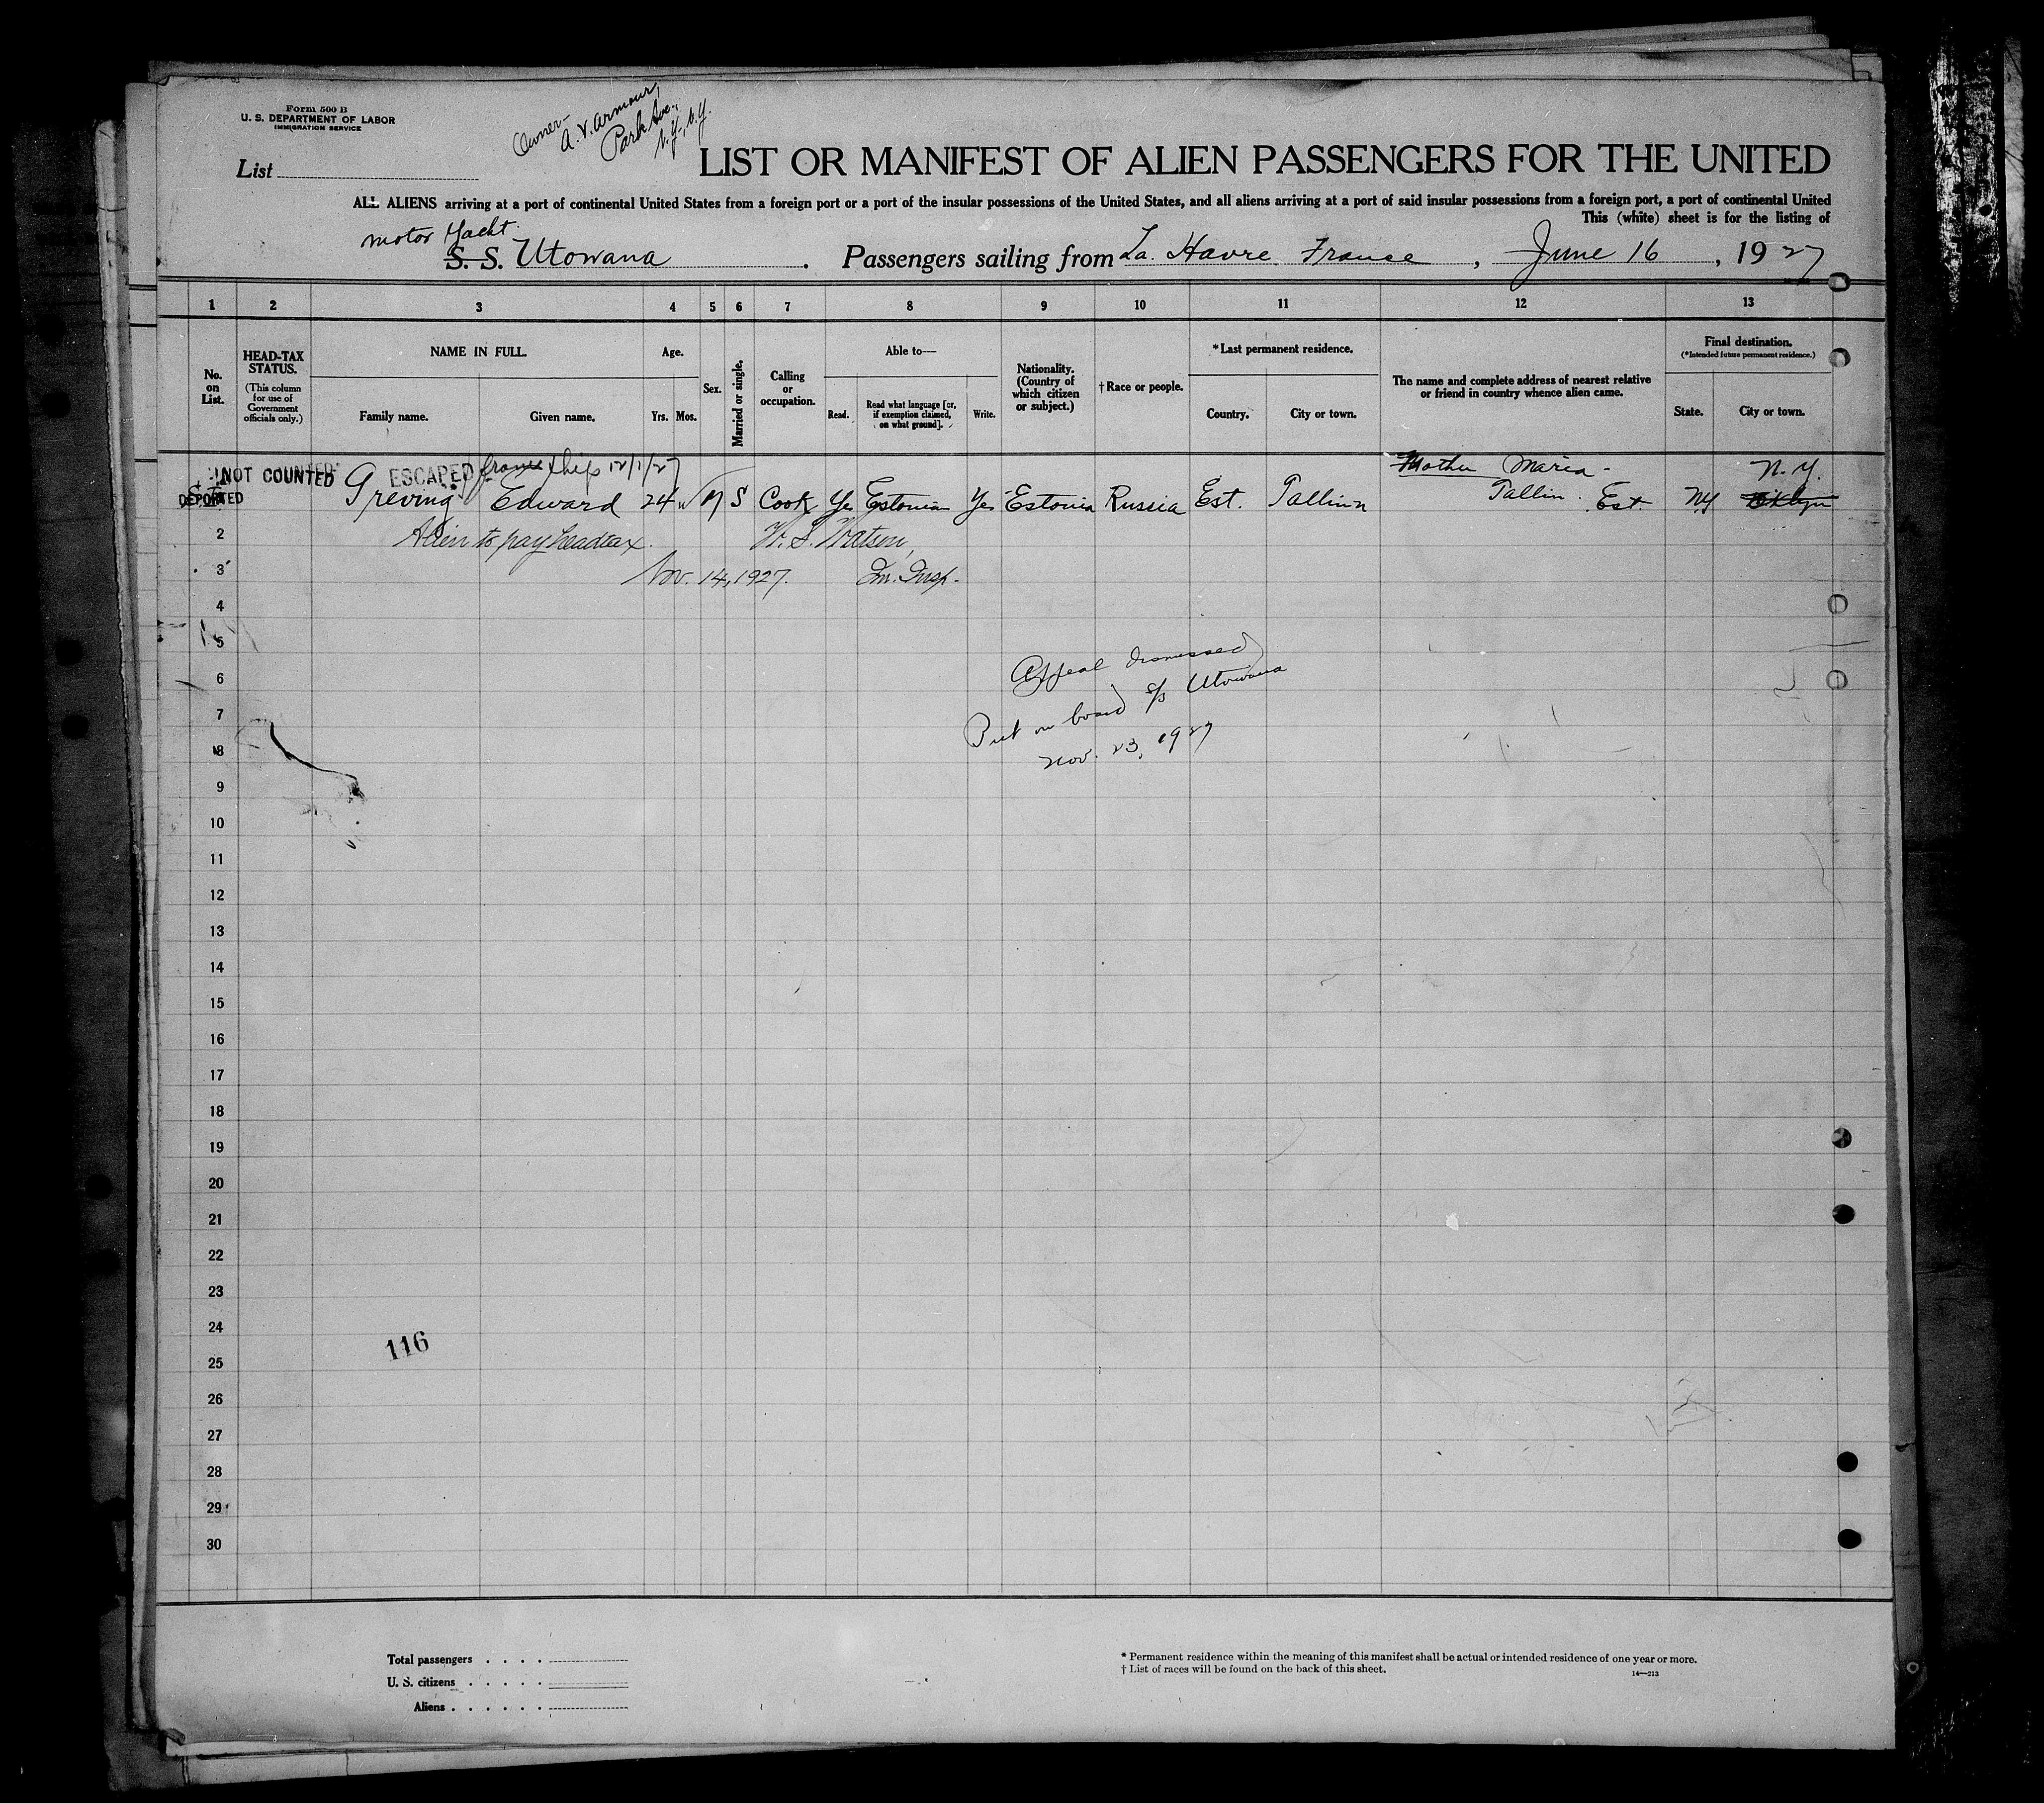 Form 500 B
U. S. DEPARTMENT OF LABOR
IMMIGRATION SERVICE
Owner-
A. V. Armour,
Park Ave.,
N.Y., N.Y.
List
LIST OR MANIFEST OF ALIEN PASSENGERS FOR THE UNITED
ALL ALIENS arriving at a port of continental United States from a foreign port or a port of the insular possessions of the United States, and all aliens arriving at a port of said insular possessions from a foreign port, a port of continental United
This (white) sheet is for the listing of
motor Yacht
S. S. Utowana . Passengers sailing from La. Havre France , June 16 , 19 27
1 2 3 4 5 6 7 8 9 10 11 12 13
No. on List.
HEAD-TAX STATUS.
(This column for use of Government officials only.)
NAME IN FULL.
Family name. Given name.
Age.
Yrs. Mos.
Sex.
Married or single.
Calling or occupation.
Able to—
Read. Read what language [or, if exemption claimed, on what ground]. Write.
Nationality. (Country of which citizen or subject.)
† Race or people.
* Last permanent residence.
Country. City or town.
The name and complete address of nearest relative or friend in country whence alien came.
Final destination.
(* Intended future permanent residence.)
State. City or town.
NOT COUNTED ESCAPED from ship 12/1/27 Mother Maria - N.Y.
DEPORTED Greving Edward 24 M S Cook Yes Estonian Yes Estonia Russia Est. Tallinn Tallin. Est. NY Bklyn
2 Alien to pay headtax. W. S. Watson,
3 Nov. 14, 1927. Im. Insp.
4
5
Appeal dismissed
6
Put on board S/S Utowana
7
Nov. 23, 1927
8
9
10
11
12
13
14
15
16
17
18
19
20
21
22
23
24
116
25
26
27
28
29
30
Total passengers . . . .
U. S. citizens . . . . .
Aliens . . . . . .
* Permanent residence within the meaning of this manifest shall be actual or intended residence of one year or more.
† List of races will be found on the back of this sheet.
14—213